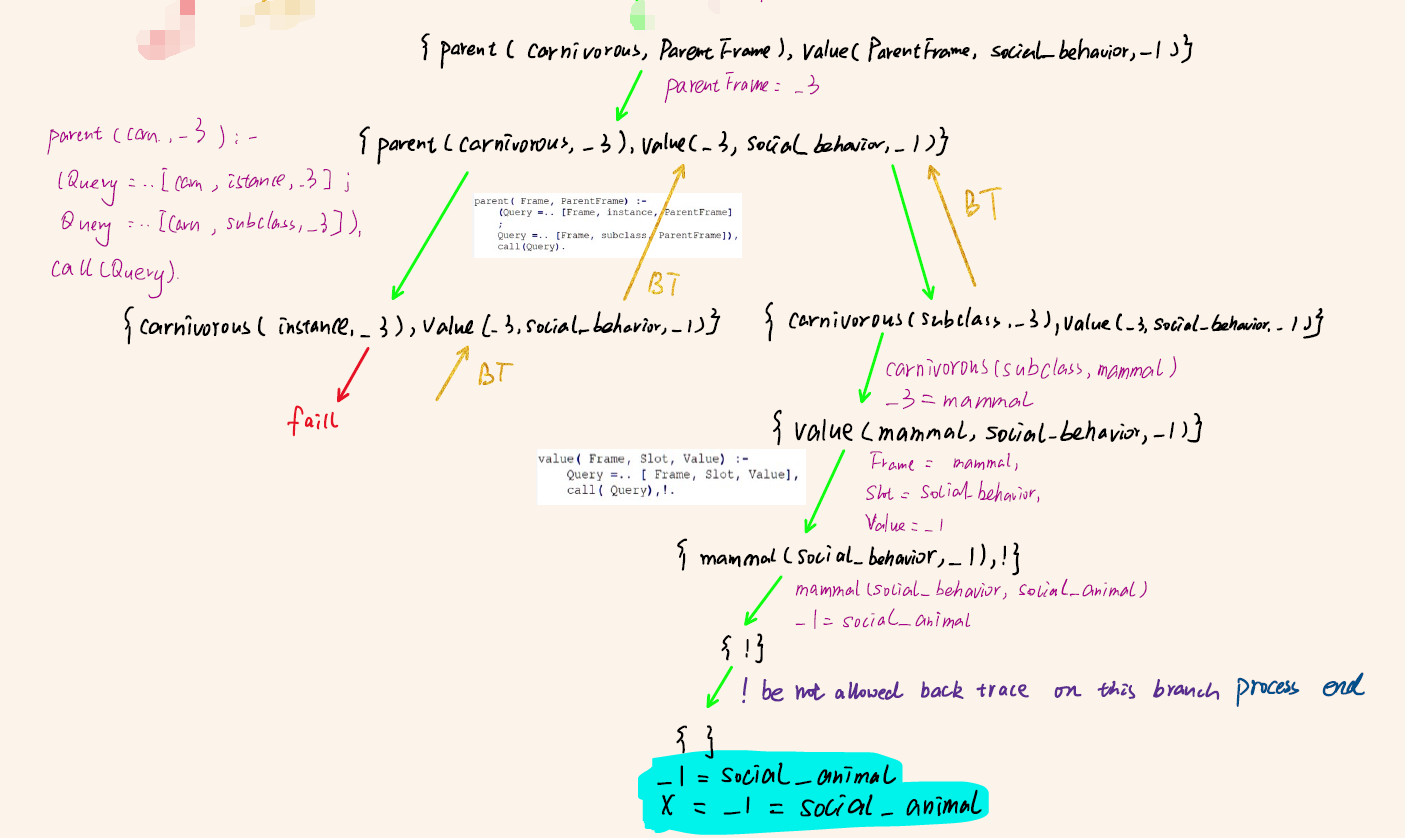 { parent ( carnivorous, ParentFrame ), value( ParentFrame, social_behavior, _1 ) }
parentFrame = _3
{ parent (carnivorous, _3 ), value( _3, social_behavior, _1 ) }
parent (carn , _3 ) : -
(Query = .. [carn , istance, _3 ] ;
Query = .. [carn , subclass, _3 ] ),
call (Query).
parent( Frame, ParentFrame) :-
(Query =.. [Frame, instance, ParentFrame]
;
Query =.. [Frame, subclass, ParentFrame]),
call(Query).
BT
BT
{ carnivorous ( instance, _3 ), value ( _3, social_behavior, _1 ) }
{ carnivorous ( subclass, _3 ), value ( _3, social_behavior, _1 ) }
BT
faill
carnivorous (subclass, mammal )
_3 = mammal
{ value ( mammal, social_behavior, _1 ) }
value( Frame, Slot, Value) :-
Query =.. [ Frame, Slot, Value],
call( Query),!.
Frame = mammal,
Slot = social_behavior,
Value = _1
{ mammal ( social_behavior, _1 ), ! }
mammal (social_behavior, social_animal )
_1 = social_animal
{ ! }
! be not allowed back trace on this branch process end
{ }
_1 = social_animal
X = _1 = social_animal